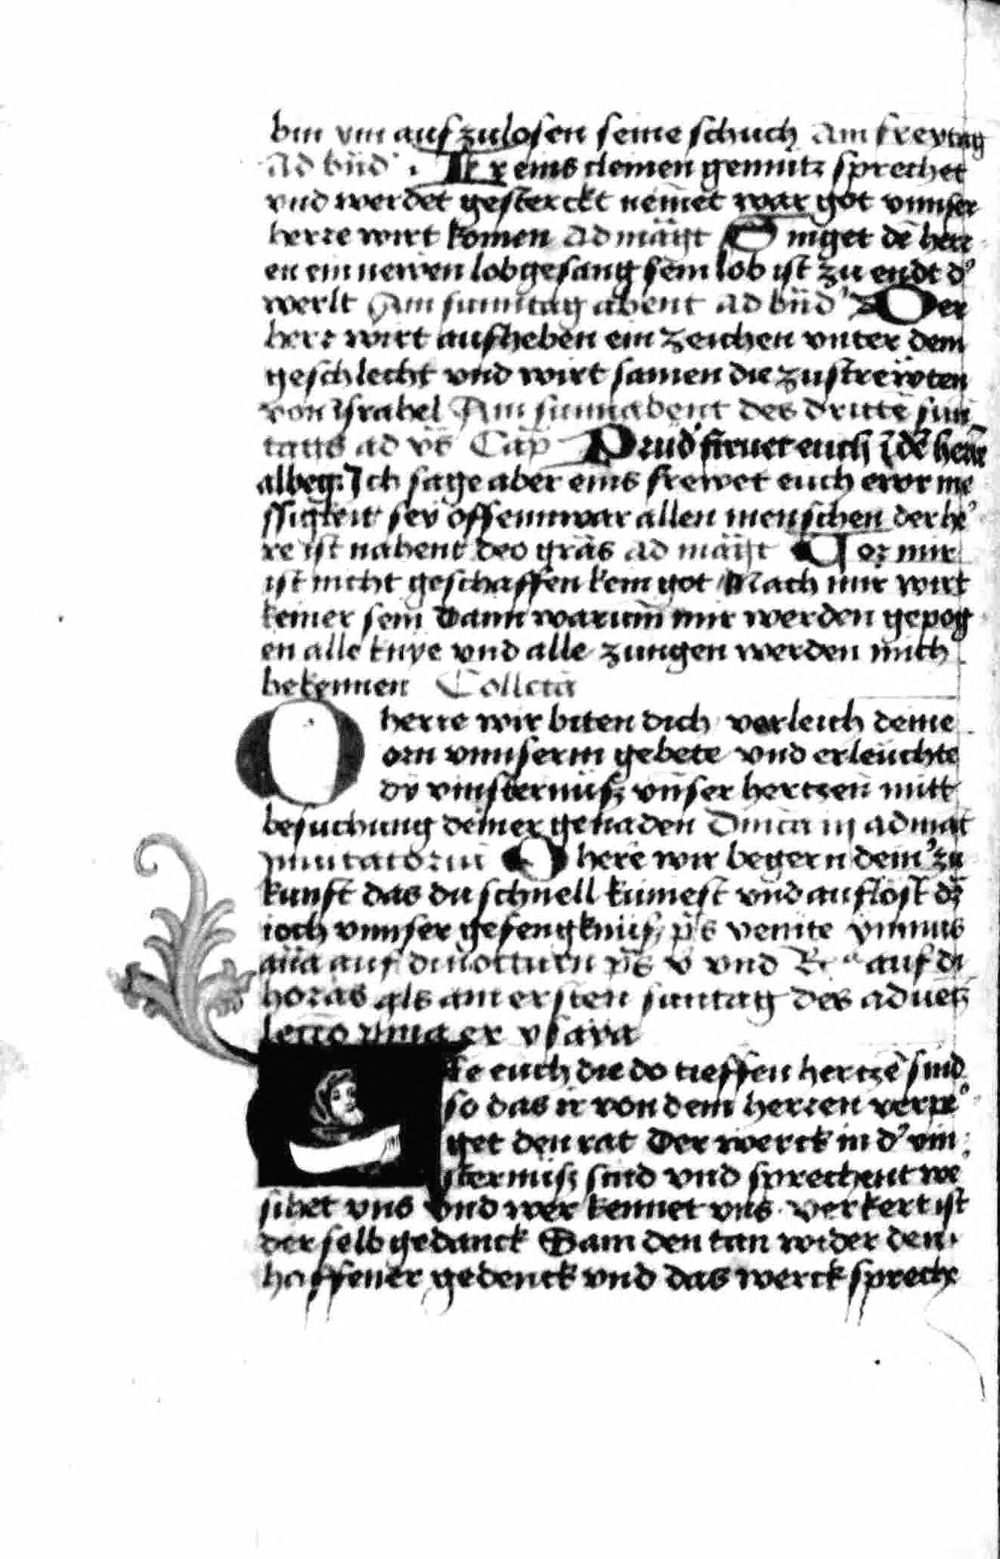 bin vm auf zulosen seine schuch Am freytag
ad bñd' . Ir eins clemen gemutz sprechet
vnd werdet gesterckt nemet war got vnnser
herre wirt komen ad mãgt Singet dē herr
en ein newen lobgesang sein lob ist zu endt d'
werlt Am sunntag abent ad bñd' Der
herr wirt aufheben ein zeichen vnter dem
geschlecht vnd wirt samen die zustrewten
von israhel Am sunnabent des dritte sun
tags ad vs̄ Cap̄ Prud' frewet euch ī dē herrē
albeg. Ich sage aber eins frewet euch ewr me
ssigkeit sey offennwar allen menschen der he'
re ist nahent deo grãs ad mãgt Vor mir
ist nicht geschaffen kein got Nach mir wirt
keiner sein Dann warum mir werden gepog
en alle knye vnd alle zungen werden mich
bekennen Collcta
O herre wir biten dich verleich deine
orn vnnserm gebete vnd erleuchte
dy vinsternusz vnser hertzen mitt
besuchung deiner genaden Dñica iij ad mat
inuitatoriū O here wir begern dein' zu
kunft das du schnell kumest vnd auflöst dz
ioch vnnser gefengknus, ps̄ venite ymnus
aña auf di nocturn ps̄ v vnd R. auf di
horas als am ersten suntag des aduetz
lectio pma ex ysaya
We euch die do tieffen hertzē sind
so das ir von dem herren verpe'
get den rat Der werck in d' vin
sternusz sind vnd sprechent we
sihet vns vnd wer kennet vns verkert ist
der selb gedanck Sam den tan wider den
haffener gedenck vnd das werck spreche